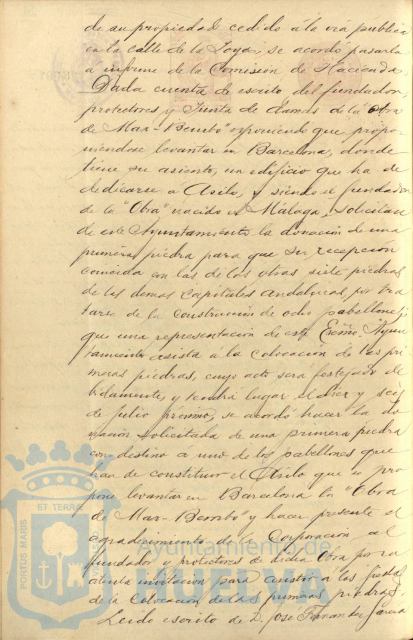 de su propiedad cedido á la via publica
en la calle de la Joya, se acordó pasarla
a informe de la Comisión de Hacienda.
Dada cuenta de escrito del fundador,
protectores y Junta de damas de la Obra
de Mar-Bembó exponiendo que propo-
niendose levantar en Barcelona, donde
tiene su asiento, un edificio que ha de
dedicarse a Asilo, y siendo el fundador
de la "Obra" nacido en Málaga, solicitan
de este Ayuntamiento la donación de una
primera piedra para que su recepcion
coincida con las de las otras siete piedras
de las demas capitales andaluzas, por tra
tarse de la construcción de ocho pabellones y
que una representación de este Excmo. Ayun
tamiento asista a la colocación de las pri
meras piedras, cuyo acto será festejado de
bidamente, y tendrá lugar el diez y seis
de julio proximo, se acordó hacer la do
nación solicitada de una primera piedra
con destino a uno de los pabellones que
han de constituir el Asilo que se pro
pone levantar en Barcelona la "Obra
de Mar-Bembó" y hacer presente el
agradecimiento de la Corporación al
fundador y protectores de dicha Obra por su
atenta invitación para asistir a las fiestas
de la colocación de las primeras piedras.
Leido escrito de D. José Fernandez
PORTUS MARIS
ET TERRAE
Ayuntamiento de
HUELVA